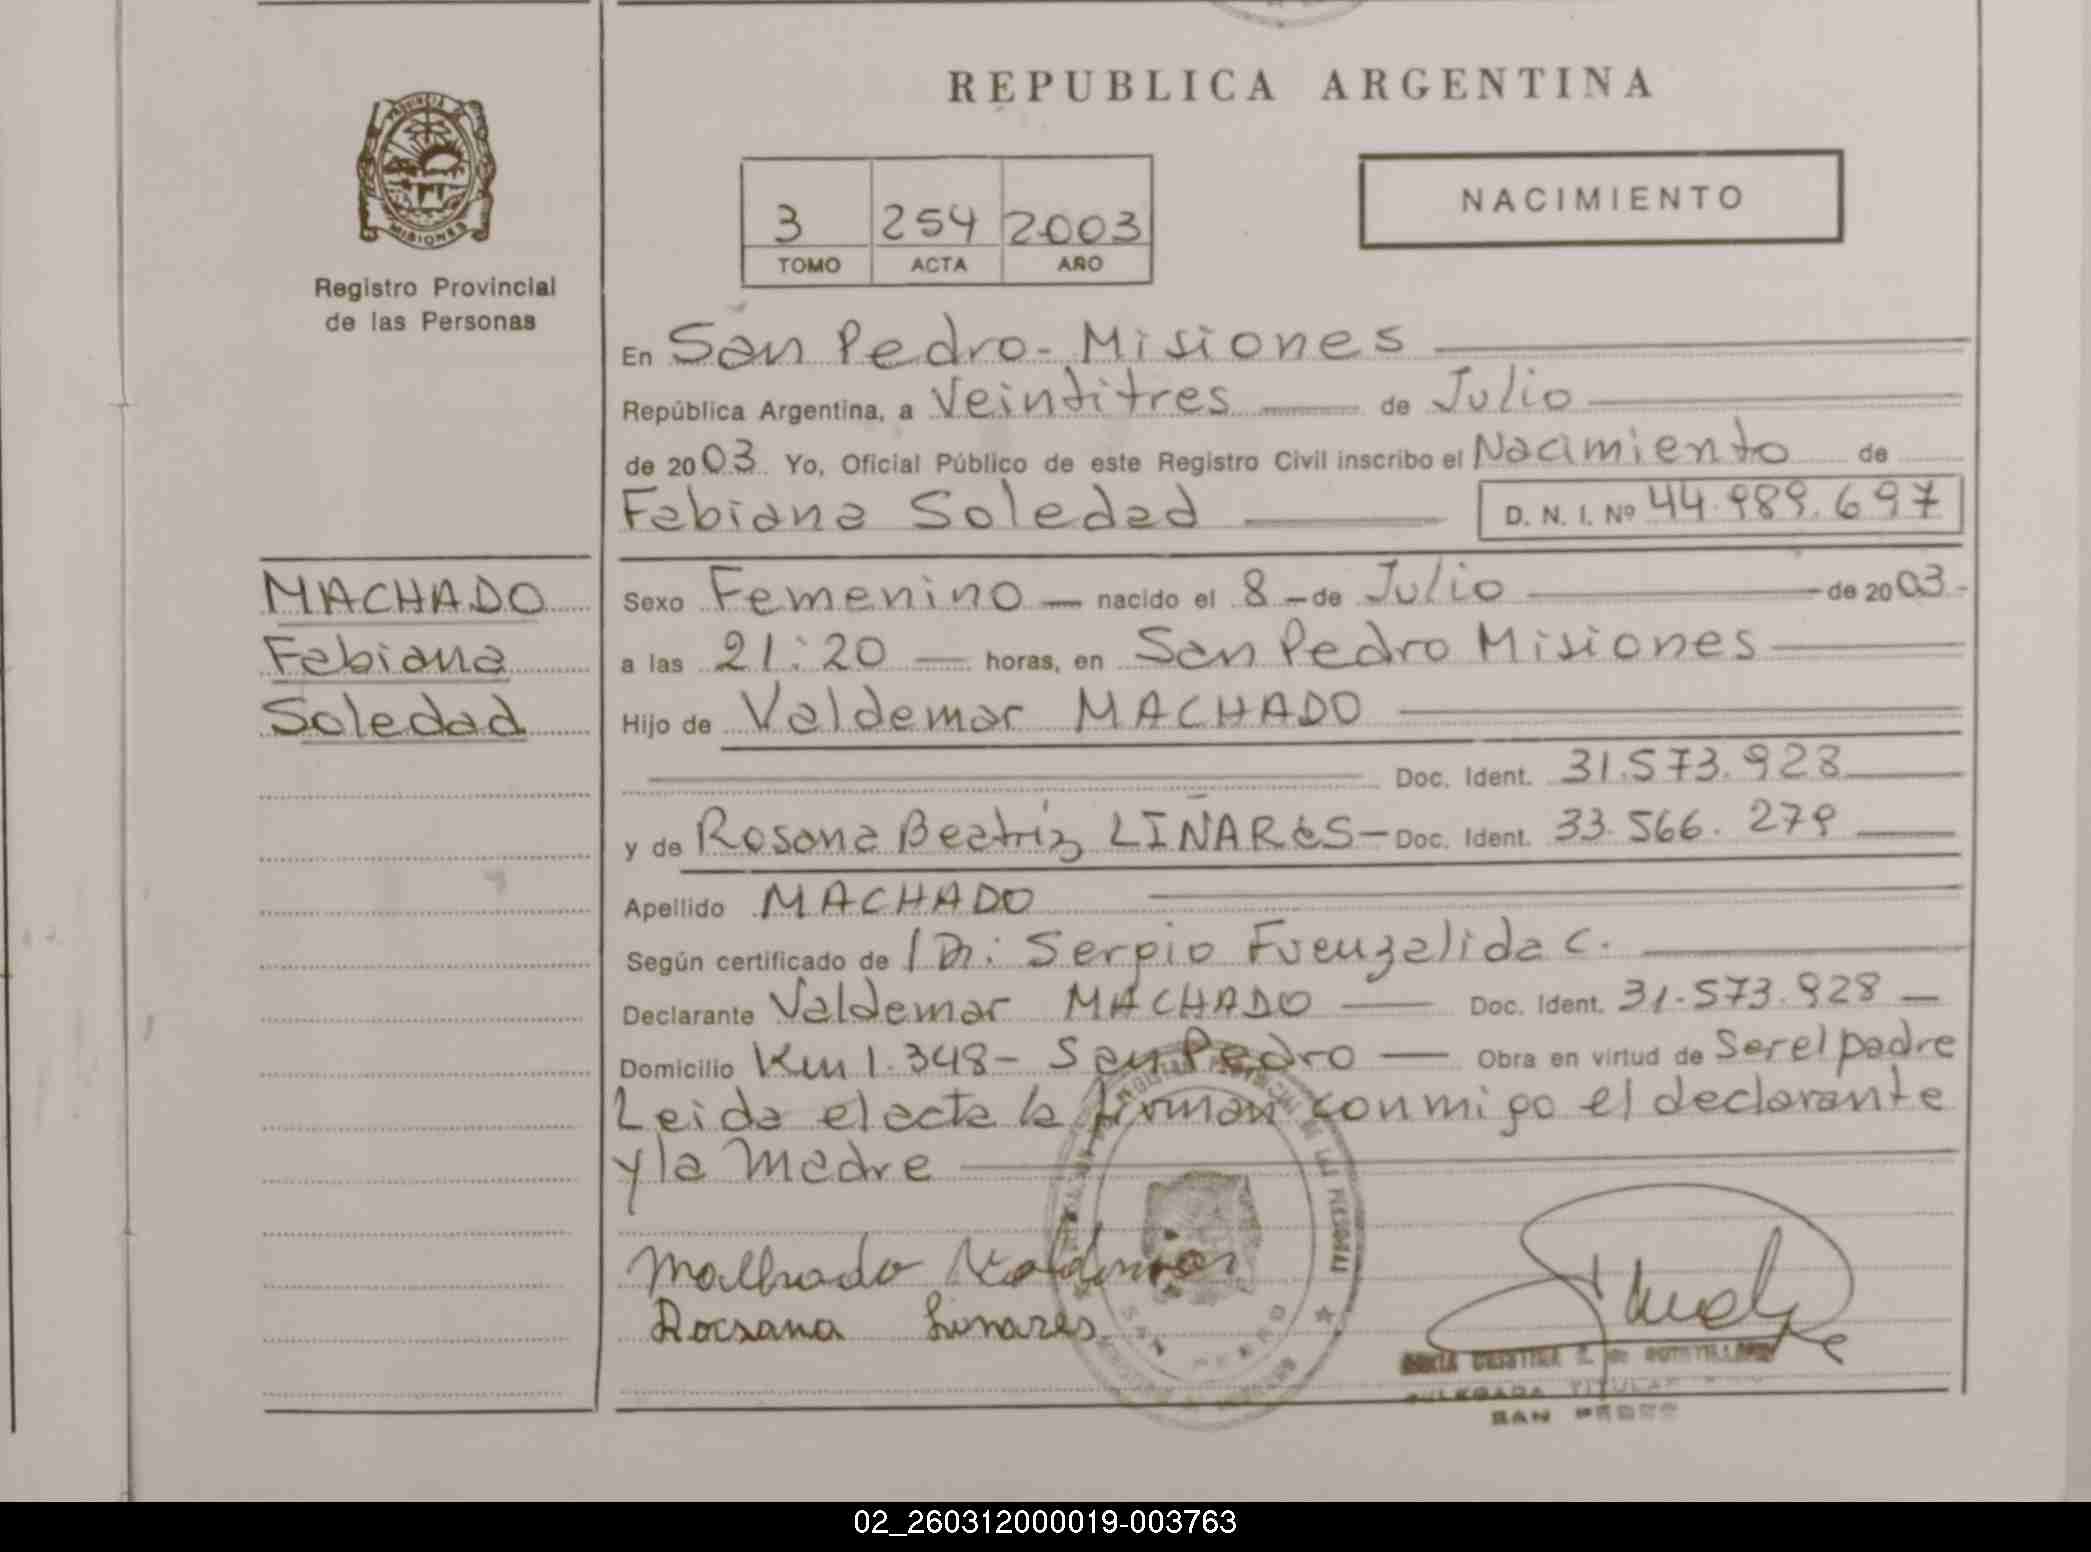 REPUBLICA ARGENTINA
PROVINCIA DE
MISIONES
Registro Provincial
de las Personas
3 254 2003
TOMO ACTA AÑO
NACIMIENTO
En San Pedro - Misiones
República Argentina, a Veintitres de Julio
de 2003 Yo, Oficial Público de este Registro Civil inscribo el Nacimiento de
Fabiana Soledad D. N. I. Nº 44.989.697
MACHADO
Fabiana
Soledad
Sexo Femenino nacido el 8 de Julio de 2003
a las 21:20 horas, en San Pedro Misiones
Hijo de Valdemar MACHADO
Doc. Ident. 31.573.928
y de Rosana Beatriz LIÑARES Doc. Ident. 33.566.279
Apellido MACHADO
Según certificado de / Dr: Sergio Fuenzalida C.
Declarante Valdemar MACHADO Doc. Ident. 31.573.928
Domicilio Km 1.348 - San Pedro Obra en virtud de Ser el padre
Leida el acta la firman conmigo el declarante
y la Madre
Machado Valdemar
Rocsana Linares
SAN PEDRO
DELEGADA TITULAR
SAN PEDRO
02_260312000019-003763